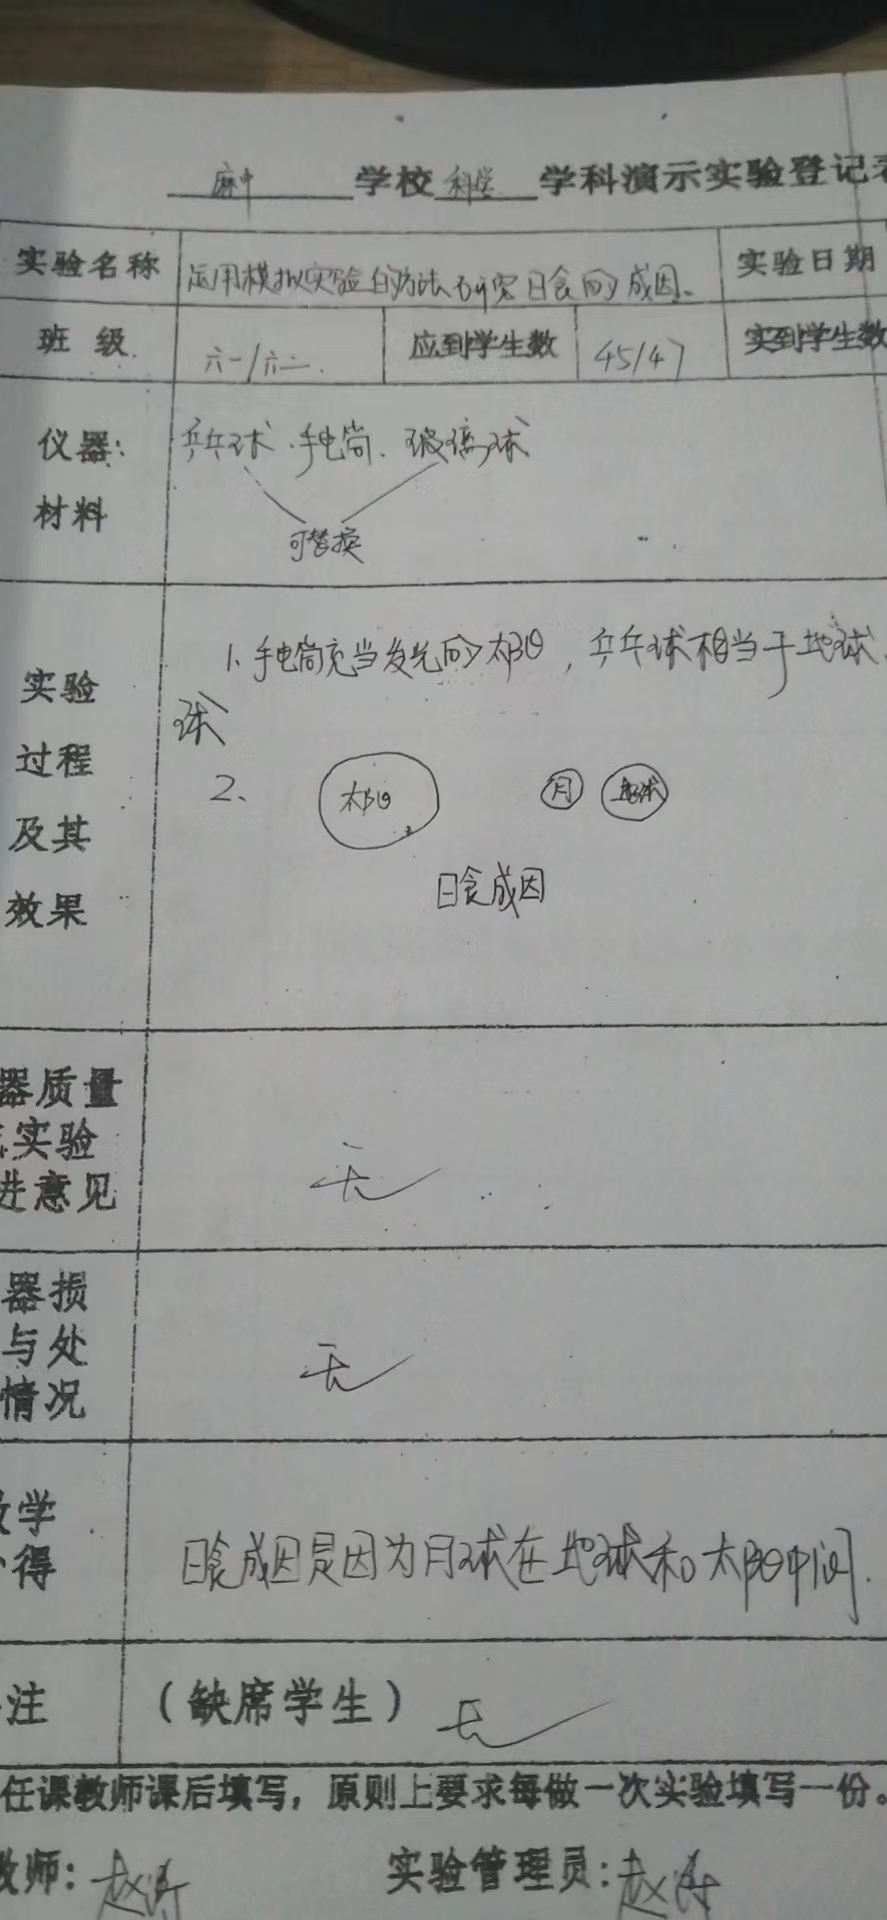 麻中 学校 科学 学科演示实验登记表
实验名称 运用模拟实验的方法研究日食的成因。 实验日期
班 级 六一/六二. 应到学生数 45/47 实到学生数
仪器: 乒乓球、手电筒、玻璃球
材料
可替换
1、手电筒充当发光的太阳，乒乓球相当于地球，
实验
球
过程
2、 太阳 月 地球
及其
日食成因
效果
器质量
实验
无
进意见
器损
与处
无
情况
学
得
日食成因是因为月球在地球和太阳中间.
注 （缺席学生） 无
任课教师课后填写，原则上要求每做一次实验填写一份。
教师: 赵涛 实验管理员: 赵涛